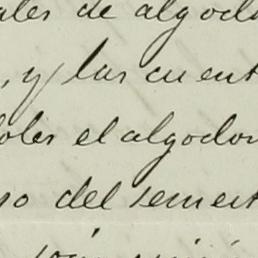 ales de algodo
, y las cuent
oles el algodon
so del sement